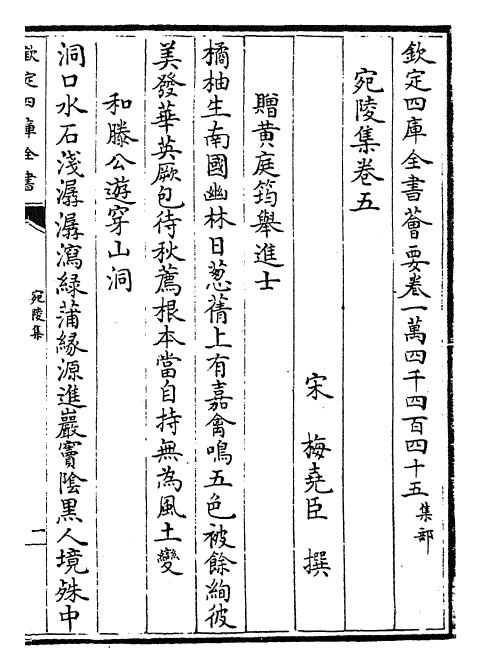 欽定四庫全書薈要卷一萬四千四百四十五集部
宛陵集卷五
宋 梅堯臣 撰
贈黄庭筠舉進士
橘柚生南國幽林日葱蒨上有嘉禽鳴五色被餘絢彼
美發華英厥包待秋薦根本當自持無為風土變
和滕公遊穿山洞
洞口水石淺潺潺瀉緑蒲緣源進巖竇陰黒人境殊中
欽定四庫全書
宛陵集
一